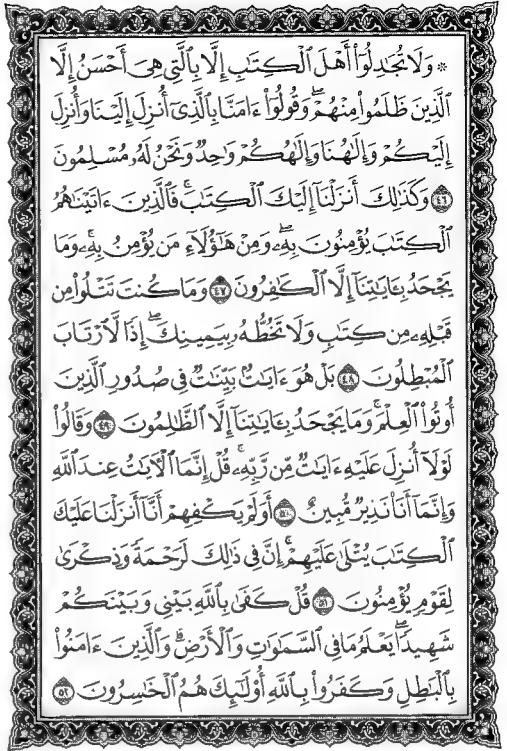 * وَلَا تُجَٰدِلُوٓا۟ أَهْلَ ٱلْكِتَٰبِ إِلَّا بِٱلَّتِى هِىَ أَحْسَنُ إِلَّا
ٱلَّذِينَ ظَلَمُوا۟ مِنْهُمْ ۖ وَقُولُوٓا۟ ءَامَنَّا بِٱلَّذِىٓ أُنزِلَ إِلَيْنَا وَأُنزِلَ
إِلَيْكُمْ وَإِلَٰهُنَا وَإِلَٰهُكُمْ وَٰحِدٌ وَنَحْنُ لَهُۥ مُسْلِمُونَ
٤٦ وَكَذَٰلِكَ أَنزَلْنَآ إِلَيْكَ ٱلْكِتَٰبَ ۚ فَٱلَّذِينَ ءَاتَيْنَٰهُمُ
ٱلْكِتَٰبَ يُؤْمِنُونَ بِهِۦ ۖ وَمِنْ هَٰٓؤُلَآءِ مَن يُؤْمِنُ بِهِۦ ۚ وَمَا
يَجْحَدُ بِـَٔايَٰتِنَآ إِلَّا ٱلْكَٰفِرُونَ ٤٧ وَمَا كُنتَ تَتْلُوا۟ مِن
قَبْلِهِۦ مِن كِتَٰبٍ وَلَا تَخُطُّهُۥ بِيَمِينِكَ ۖ إِذًا لَّٱرْتَابَ
ٱلْمُبْطِلُونَ ٤٨ بَلْ هُوَ ءَايَٰتٌۢ بَيِّنَٰتٌ فِى صُدُورِ ٱلَّذِينَ
أُوتُوا۟ ٱلْعِلْمَ ۚ وَمَا يَجْحَدُ بِـَٔايَٰتِنَآ إِلَّا ٱلظَّٰلِمُونَ ٤٩ وَقَالُوا۟
لَوْلَآ أُنزِلَ عَلَيْهِ ءَايَٰتٌ مِّن رَّبِّهِۦ ۖ قُلْ إِنَّمَا ٱلْءَايَٰتُ عِندَ ٱللَّهِ
وَإِنَّمَآ أَنَا۠ نَذِيرٌ مُّبِينٌ ٥٠ أَوَلَمْ يَكْفِهِمْ أَنَّآ أَنزَلْنَا عَلَيْكَ
ٱلْكِتَٰبَ يُتْلَىٰ عَلَيْهِمْ ۚ إِنَّ فِى ذَٰلِكَ لَرَحْمَةً وَذِكْرَىٰ
لِقَوْمٍ يُؤْمِنُونَ ٥١ قُلْ كَفَىٰ بِٱللَّهِ بَيْنِى وَبَيْنَكُمْ
شَهِيدًا ۖ يَعْلَمُ مَا فِى ٱلسَّمَٰوَٰتِ وَٱلْأَرْضِ ۗ وَٱلَّذِينَ ءَامَنُوا۟
بِٱلْبَٰطِلِ وَكَفَرُوا۟ بِٱللَّهِ أُو۟لَٰٓئِكَ هُمُ ٱلْخَٰسِرُونَ ٥٢